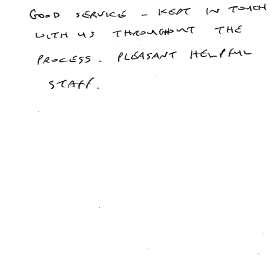 GOOD SERVICE - KEPT IN TOUCH
WITH US THROUGHOUT THE
PROCESS. PLEASANT HELPFUL
STAFF.